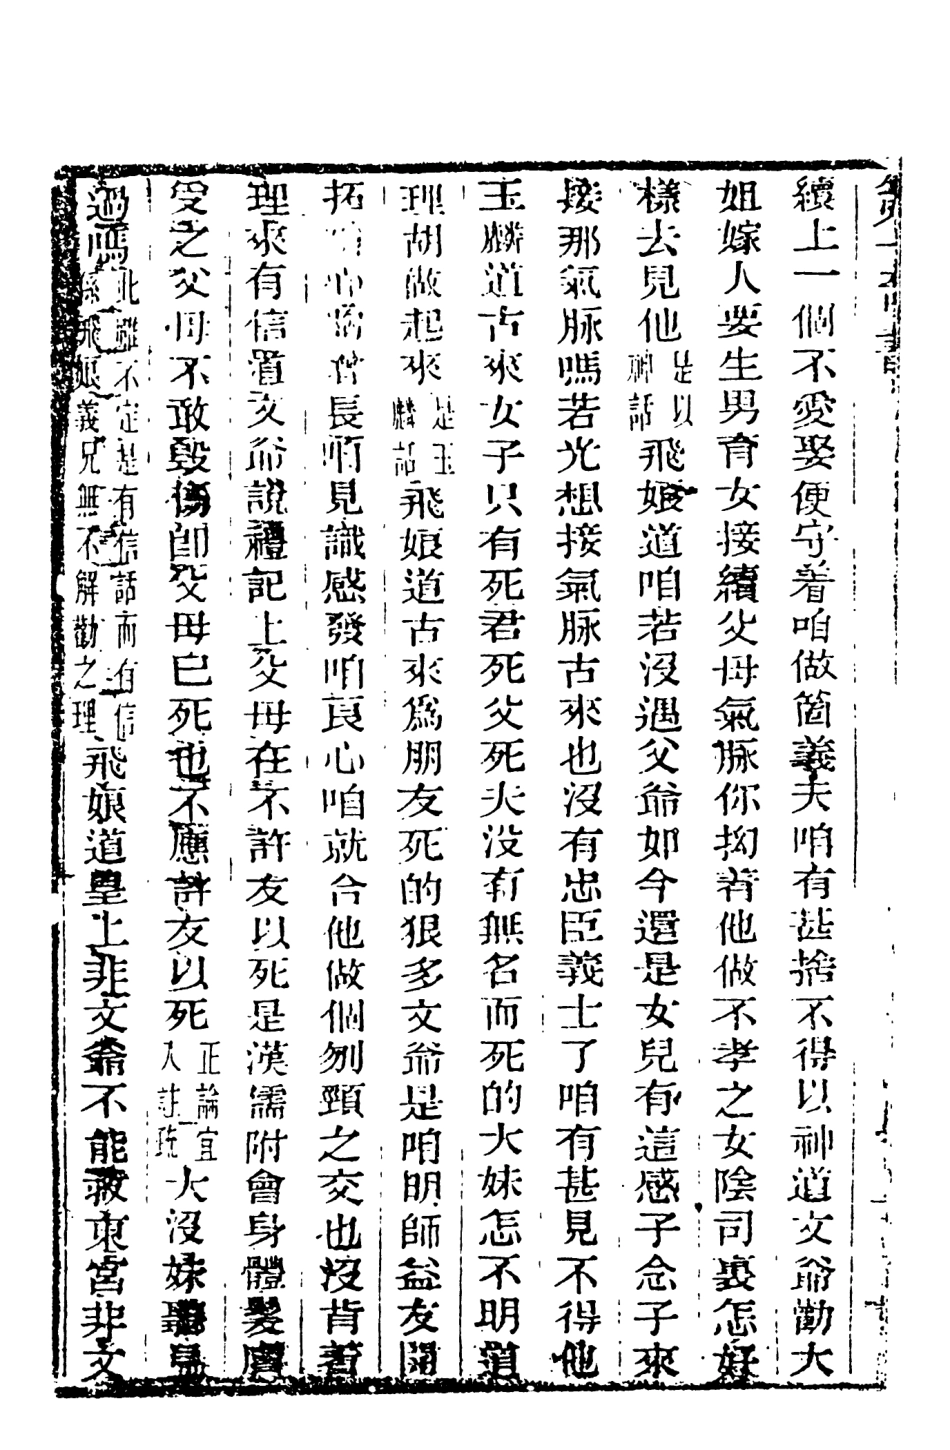 續上一個不愛娶便守着咱做箇義夫咱有甚捨不得以神道文爺勸大
姐嫁人要生男育女接續父母氣脉你拗着他做不孝之女陰司裏怎好
樣去見他是以神話飛娘道咱若沒遇父爺如今還是女兒有這感子念子來
接那氣脉嗎若光想接氣脉古來也沒有忠臣義士了咱有甚見不得他
玉麟道古來女子只有死君死父死夫没有無名而死的大妹怎不明道
理胡做起來是玉麟話飛娘道古來爲朋友死的狠多文爺是咱明師益友開
拓咱心胷增長咱見識感發咱良心咱就合他做個刎頸之交也沒背着
理來有信道文爺說禮記上父母在不許友以死是漢儒附會身體髮膚
受之父母不敢毀傷即父母已死也不應許友以死正論宜人註疏大沒妹聽見
過嗎此雖不定是有信話而有信係飛娘義兄無不解勸之理飛娘道皇上非文爺不能救東宮非文